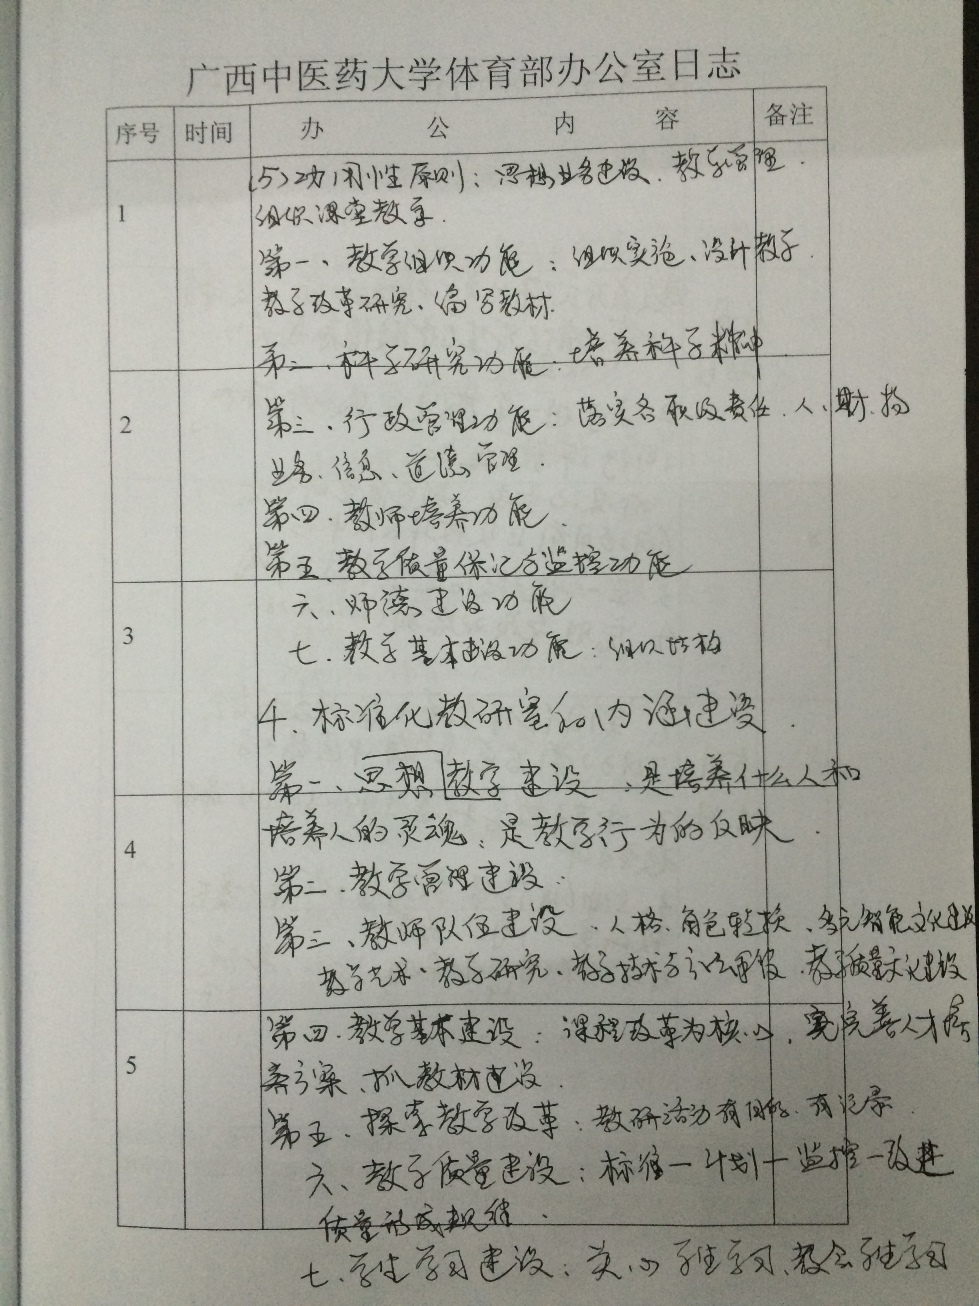 广西中医药大学体育部办公室日志
序号 时间 办公内容 备注
1
(5)功用性原则：思想业务建设、教学管理.
组织课堂教学.
第一、教学组织功能：组织实施、设计教学.
教学改革研究、编写教材.
第二、科学研究功能：培养科学精神.
2
第三、行政管理功能：落实各职级责任.人、财、物
业务、信息、道德管理.
第四、教师培养功能.
第五、教学质量保证与监控功能
3
六、师德建设功能
七、教学基本建设功能：组织结构
4、标准化教研室和内涵建设.
第一、思想教学建设、是培养什么人和
4
培养人的灵魂，是教学行为的反映.
第二、教学管理建设.
第三、教师队伍建设、人格、角色转换、多元智能文化建设
教学艺术、教学研究、教学技术与、教学质量文化建设
5
第四、教学基本建设：课程改革为核心，完善人才培
养方案、抓教材建设.
第五、探索教学改革：教研活动有目的.有记录.
六、教学质量建设：标准—计划—监控—改进
质量形成规律.
七、学生学习建设：关心学生学习、教会学生学习